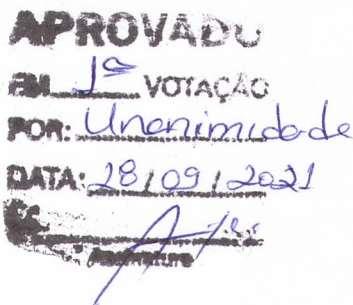 APROVADO
EM 1ª VOTAÇÃO
POR: Unanimidade
DATA: 28/09/2021
Assinatura